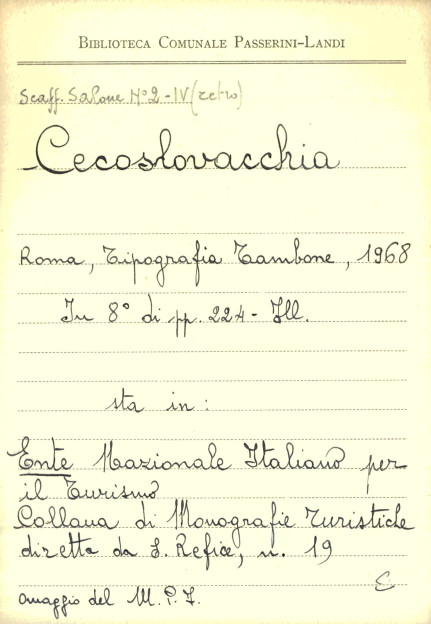 BIBLIOTECA COMUNALE PASSERINI-LANDI
Scaff. Salone N° 2 - IV (retro)
Cecoslovacchia
Roma, Tipografia Tambone, 1968
In 8° di pp. 224 - Ill.
sta in:
Ente Nazionale Italiano per
il Turismo
Collana di Monografie Turistiche
diretta da L. Refice, n. 19
omaggio del M. P. I.